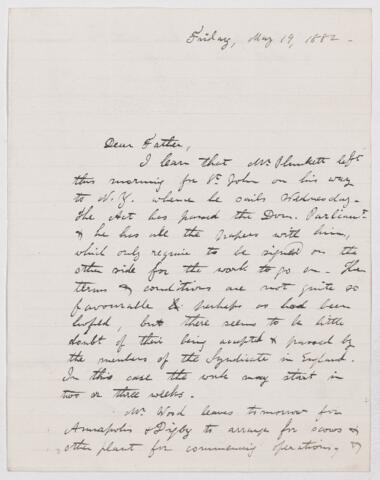 Friday, May 19, 1882.
Dear Father,
I learn that Mr. Plunkett left
this morning for St. John on his way
to N.Y. whence he sails Wednesday.
The Act has passed the Dom. Parliamt.
& he has all the papers with him,
which only require to be signed on the
other side for the work to go on. The
terms & conditions are not quite so
favourable & perhaps as had been
hoped, but there seems to be little
doubt of their being accepted & passed by
the members of the Syndicate in England.
In this case the work may start in
two or three weeks.
Mr. Wood leaves tomorrow for
Annapolis & Digby to arrange for scows &
other plant for commencing operations, &